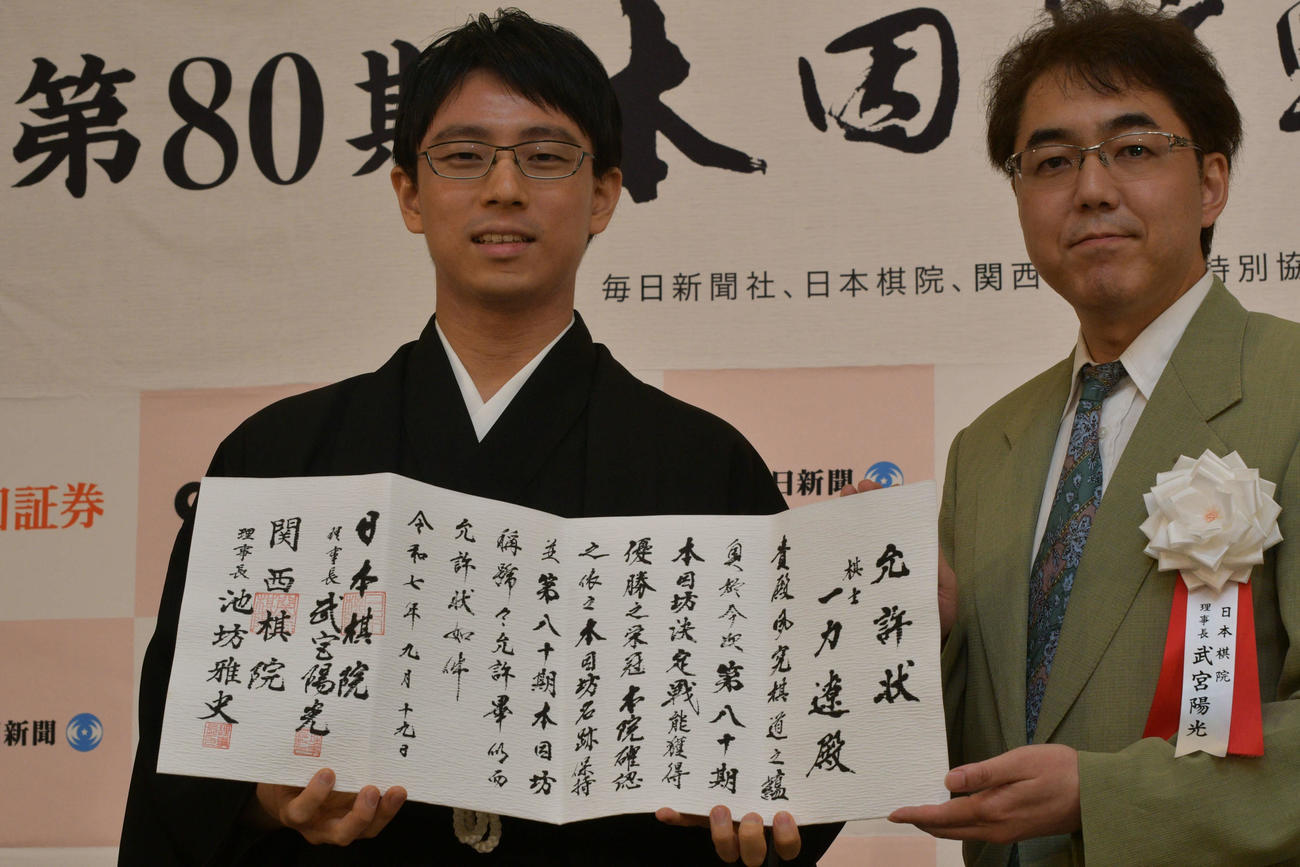 第80期
本因
毎日新聞社、日本棋院、関西
特別協
証券
日新聞
新聞
允許状
棋士 一力遼殿
貴殿夙究棋道之蘊
奥於今次第八十期
本因坊決定戦能獲得
優勝之栄冠本院確認
之依之本因坊名跡保持
並第八十期本因坊
称號々允許畢仍而
允許状如件
令和七年九月十九日
日本棋院
理事長 武宮陽光
関西棋院
理事長 池坊雅史
日本棋院
理事長 武宮陽光